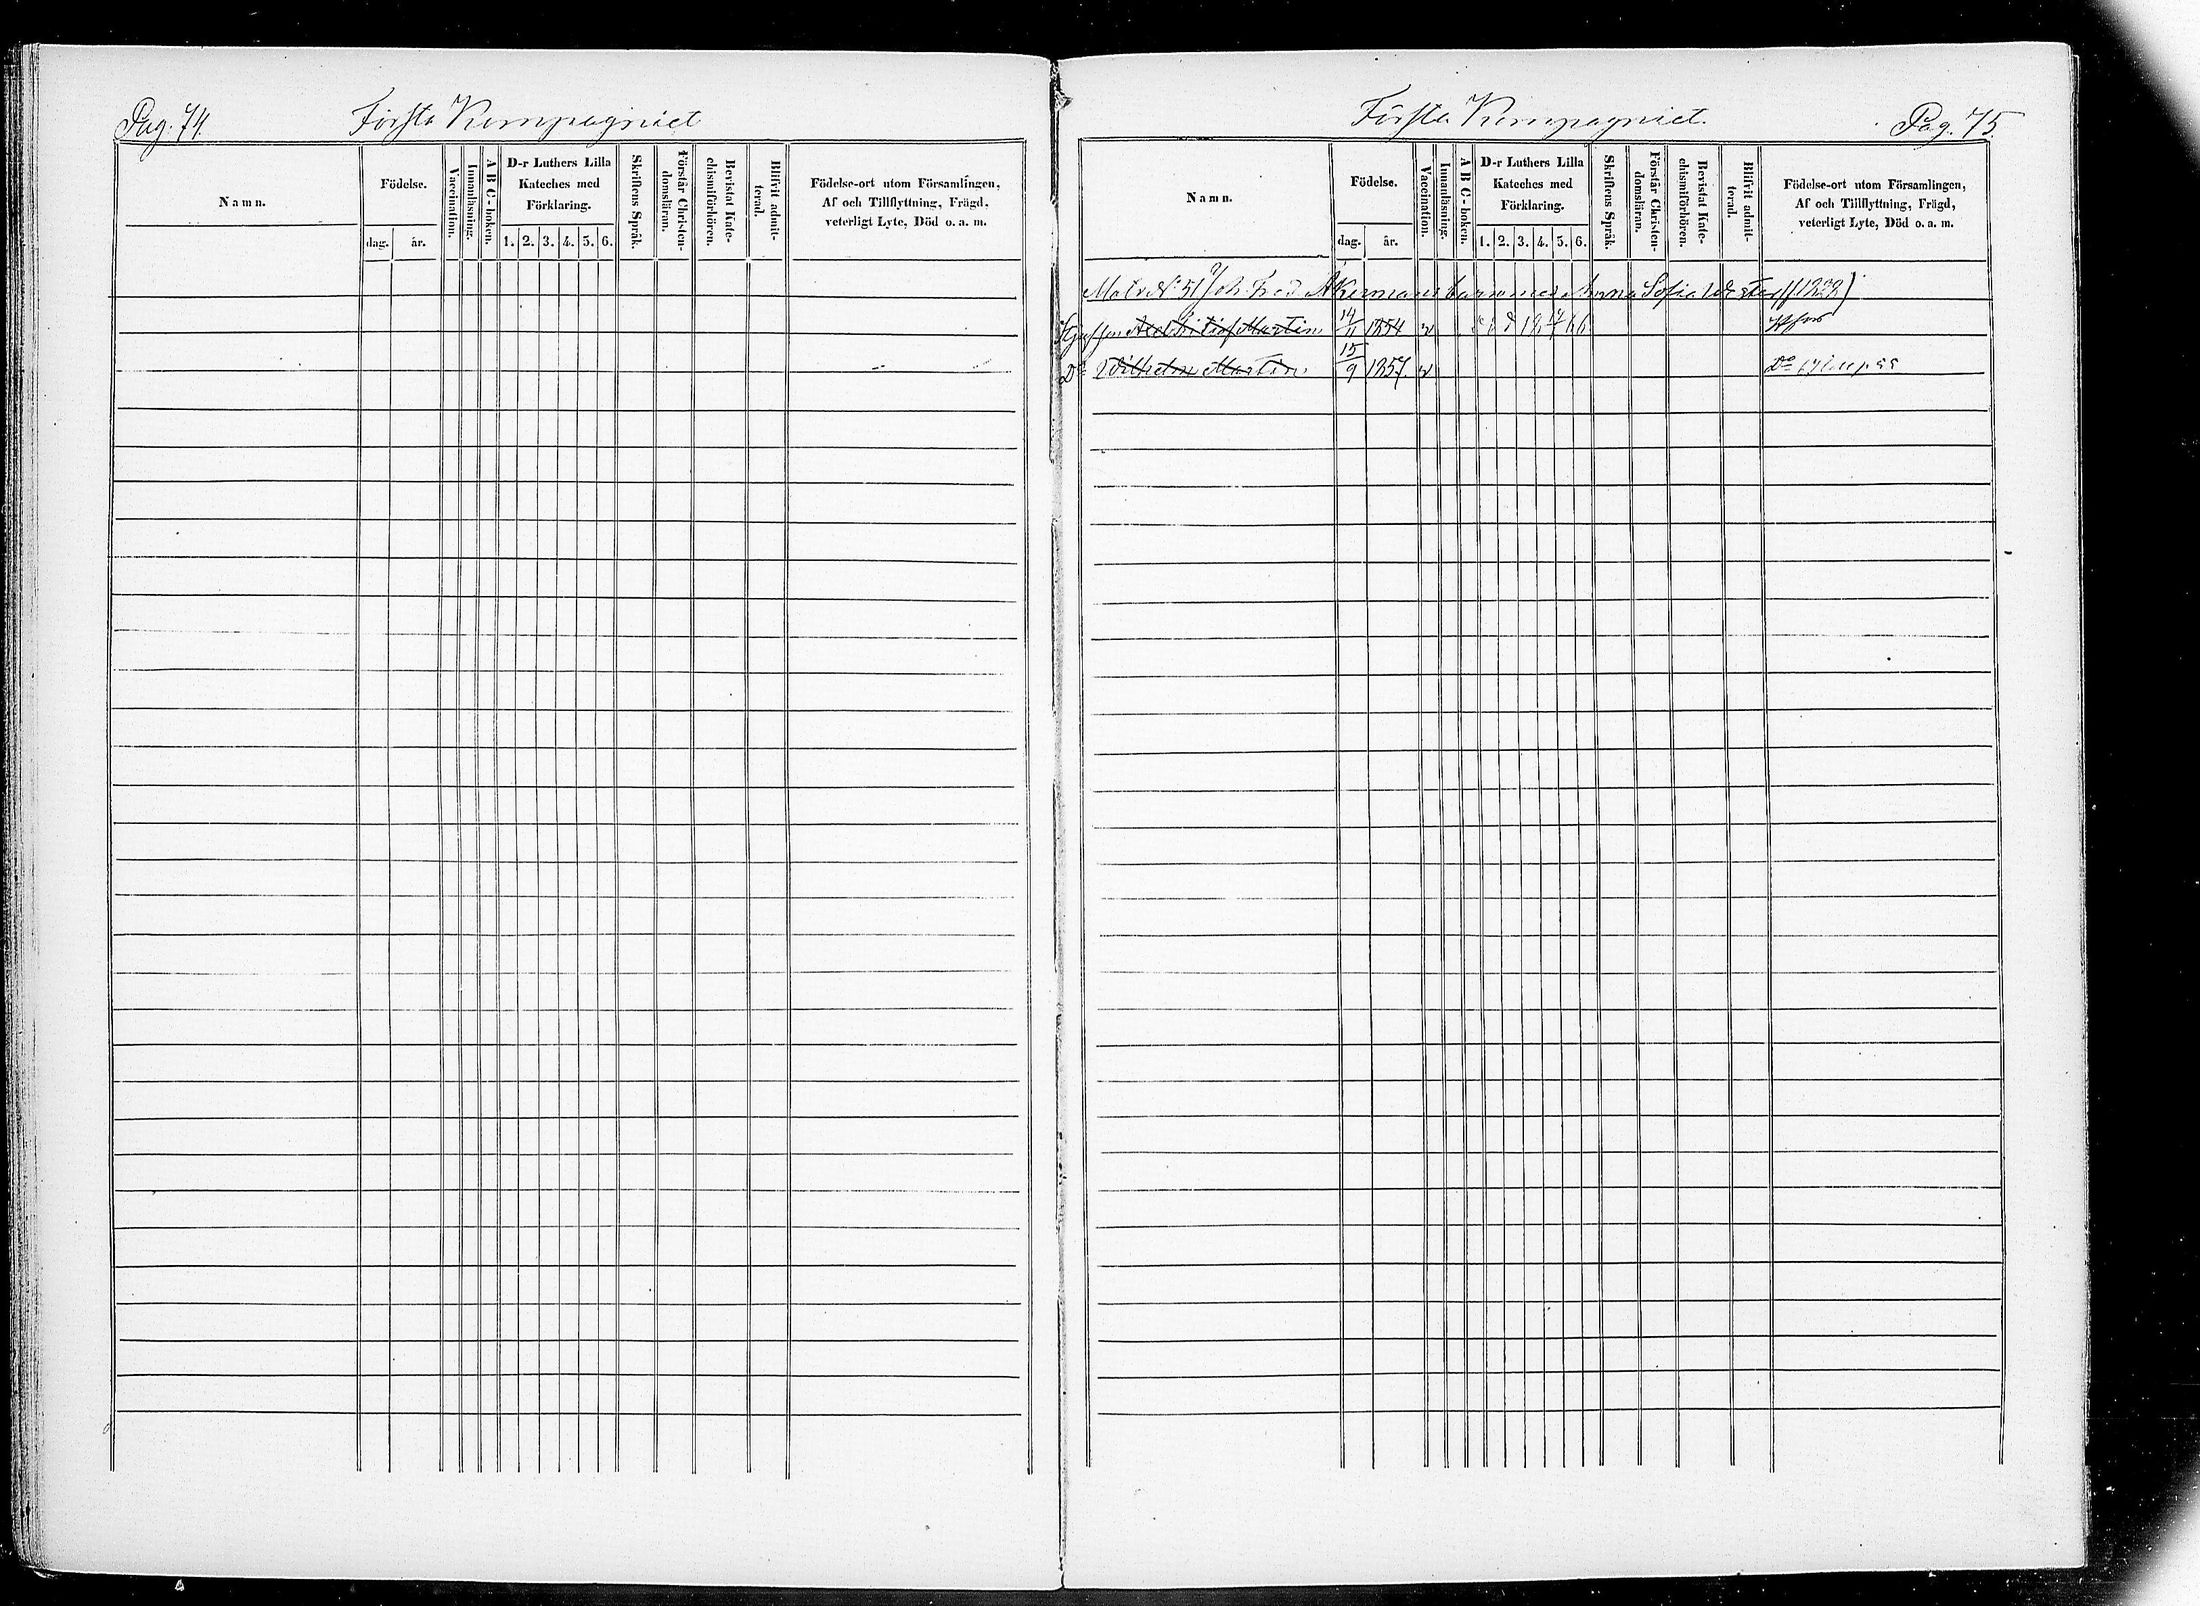 Pag. 74. Första Kompagniet
Namn.
Födelse.
dag. år.
Vaccination.
Innanläsning.
A B C-boken.
D-r Luthers Lilla
Kateches med
Förklaring.
1. 2. 3. 4. 5. 6.
Skriftens Språk.
Förstår Christen-
domsläran.
Bevistat Kate-
chismiförhören.
Blifvit admit-
terad.
Födelse-ort utom Församlingen,
Af och Tillflyttning, Frägd,
veterligt Lyte, Död o. a. m.
Första Kompagniet. Pag. 75.
Namn.
Födelse.
dag. år.
Vaccination.
Innanläsning.
A B C-boken.
D-r Luthers Lilla
Kateches med
Förklaring.
1. 2. 3. 4. 5. 6.
Skriftens Språk.
Förstår Christen-
domsläran.
Bevistat Kate-
chismiförhören.
Blifvit admit-
terad.
Födelse-ort utom Församlingen,
Af och Tillflyttning, Frägd,
veterligt Lyte, Död o. a. m.
51 Joh. Fred Åkermans barn med Anna Sofia
Martin 14/11 1854 v
Do Wilhelm Martin 15/9 1857. v Do